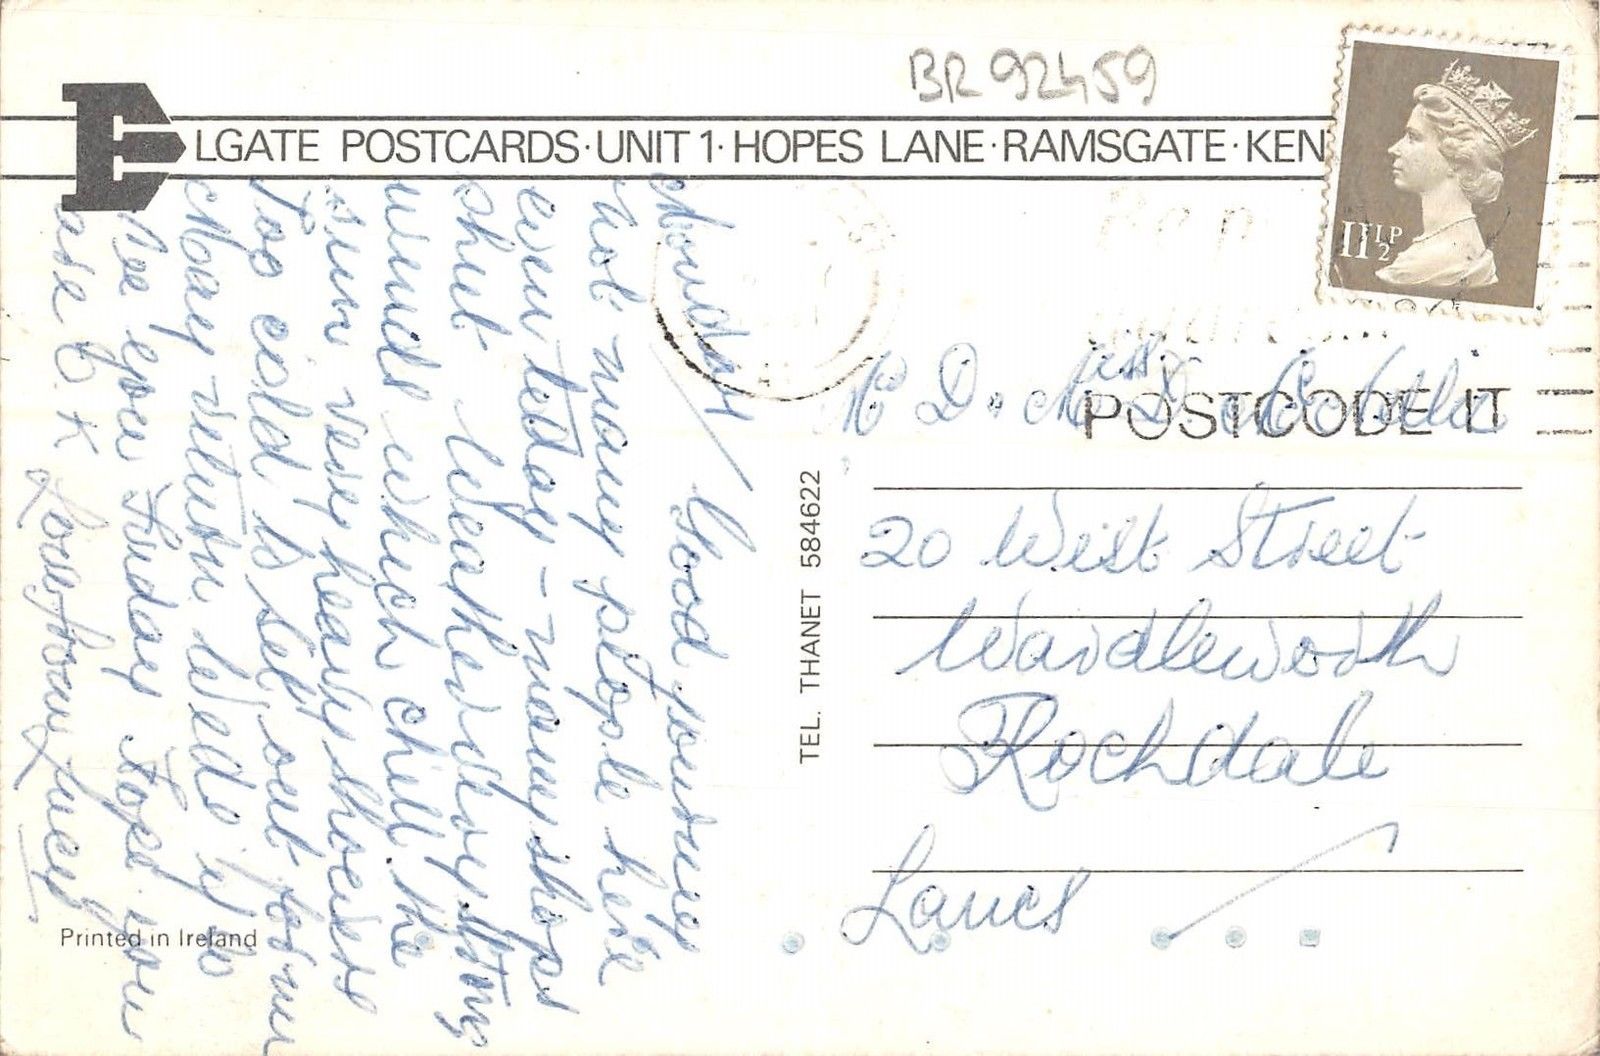 BR 92459
ELGATE POSTCARDS·UNIT 1·HOPES LANE·RAMSGATE·KEN
11½P
POSTCODE IT
TEL. THANET 584622
Monday / Good journey
not many people here
even today - many shops
shut Weather very strong
winds which chill the
sun very heavy showers
Too cold to sell out for
Mary return Weds
See you Friday Hope you
are O.K Love from Lucy
20 West Street
Wardleworth
Rochdale
Lancs
Printed in Ireland